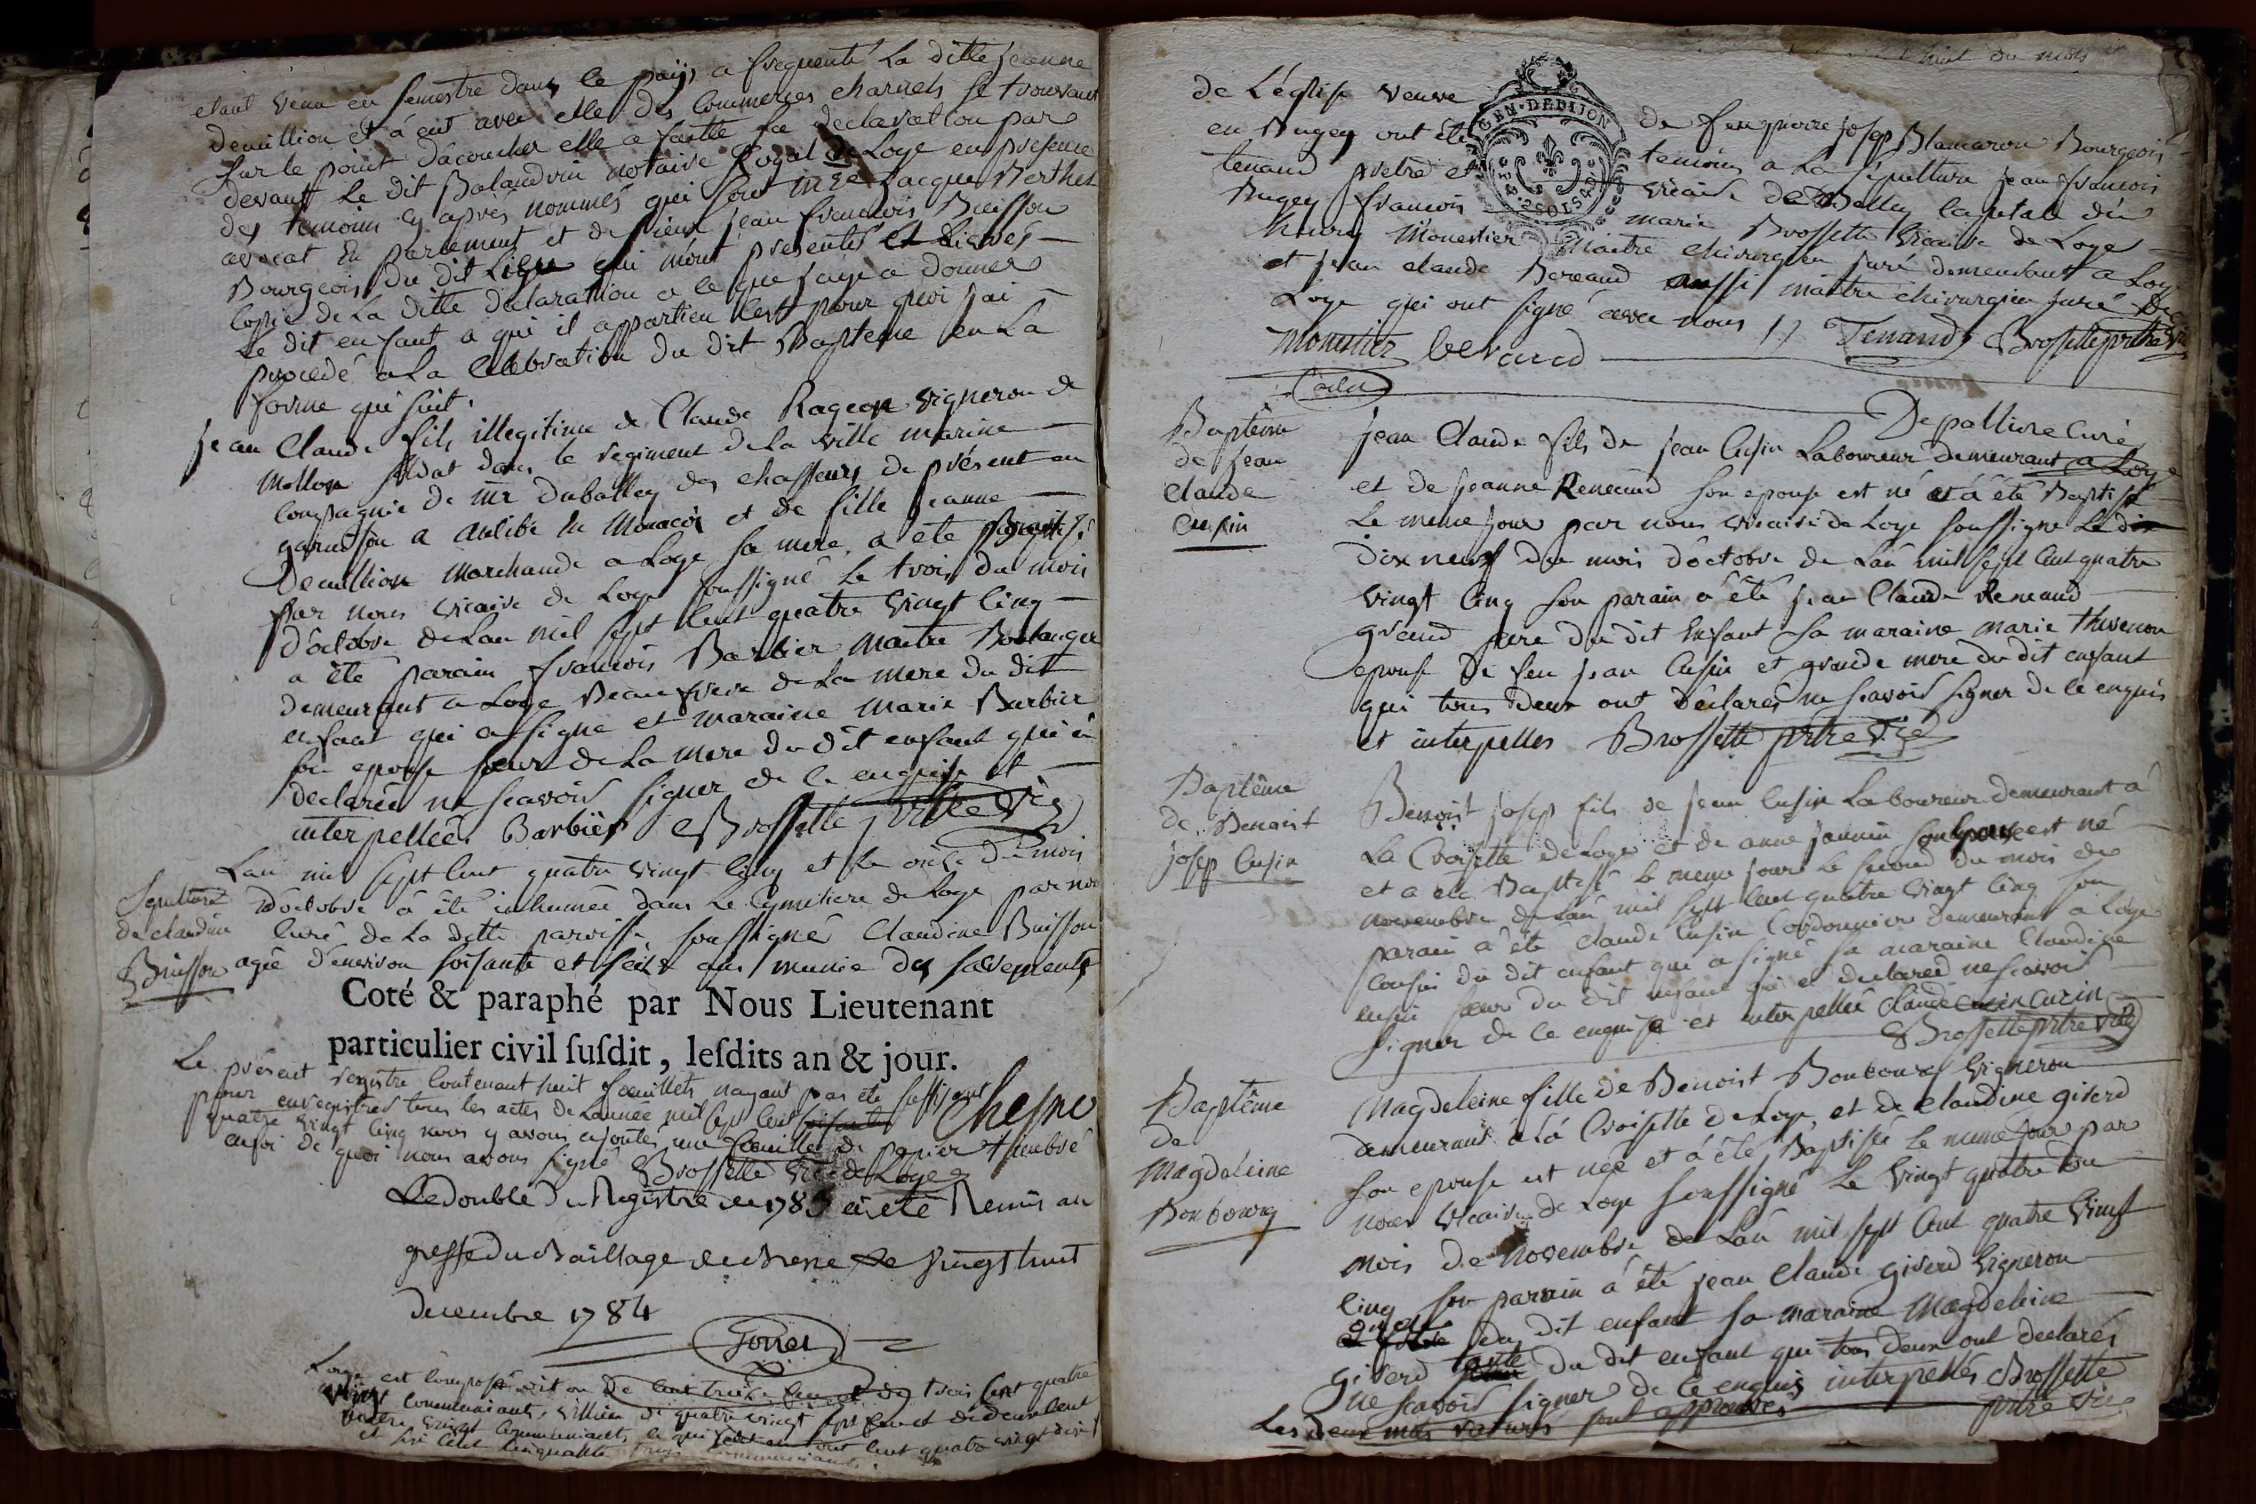 etant venu en semestre dans le pays a frequenté la ditte jeanne
demillion et á eut avec elle des commerces charnels se trouvant
sur le point d'acoucher elle a faitte sa declaration par
devant le dit Balandrin notaire Royal de Loye en presence
des temoins cy après nommés qui sont Jacque Berthet
avocat en parlement et de sieur jean francois Buisson
Bourgeois du dit Lieu qui m'ont presentés
copie de la ditte declarattion a ce que j'aye a donner
le dit enfant a qui il appartien c'est pour quoi j'ai
procedé a la celebration du dit Bapteme en la
forme qui suit.
jean Claude fils illegitime de Claude Rageon vigneron de
Mollon soldat dans le regiment de la ville marine
compagnie de mr Duballey des chasseurs de présent en
garnison a antibe ou Monaco et de fille jeanne
Demillion marchande a Loye sa mere, a été Baptisé
par nous vicaire de Loye soussigné le trois du mois
d'octobre de l'an mil sept cent quatre vingt cinq
a été parain francois Barbier maitre Boulanger
demeurant a Loye Beaufrere de la mere du dit
enfant qui a signé et maraine marie Barbier
son epouse sœur de la mere du dit enfant qui a
declarée ne scavoir signer de ce enquise et
interpellée. Barbier Brossette prtre vic
L'an mil sept cent quatre vingt cinq et le onze du mois
Sepulture
de claudine
Buisson
d'octobre á été inhumée dans le cymitiere de Loye par nous
curé de la ditte paroisse soussigné Claudine Buisson
agée d'environ soisante et seize ans munie des sacrements
Coté & paraphé par Nous Lieutenant
particulier civil susdit, lesdits an & jour.
Chesne
Le présent registre contenant huit feuillets n'ayant pas été suffisant
pour enregistrer tous les actes de l'année mil sept cent soisante
quatre vingt cinq nous y avons ajoutés une feuille de papier timbré
en foi de quoi nous avons signé Brossette vic de Loye
Le double du Registre de 1785 a été Remis au
greffe du Baillage de Bresse Le vingt huit
decembre 1784
Loye est composé de cent treize feux et de trois cent quatre
vingt communiants, villieu de quatre vingt sept feux et de deux cent
quatre vingt communiants, ce qui fait en tout cent quatre vingt dix
et six cent cinquante trois communiants.
huit du mois
de L'église veuve de feu pierre josep Blamaron Bourgeois
en Bugey ont été temoins a la sepulture jean francois
tenand pretre et vicaire de Belley capitale du
Bugey francois marie Brossette vicaire de Loye
thury Monestier maitre chirurgien juré demeurant a Loy
et jean claude Beraud aussi maitre chirurgien juré de
Loye qui ont signé avec nous Tenand Brossette prtre vic
monestier beraud
GEN·DEDIJON
Depalliere Curé
Baptême
de jean
claude
Cusin
jean Claude fils de jean Cusin Laboureur demeurant a Loye
et de jeanne Renaud son epouse est né et á été Baptisé
le meme jour par nous vicaire de Loye soussigné le dix
dix neuf du mois d'octobre de l'an mil sept cent quatre
vingt cinq son parain a été jean Claude Renaud
grand pere du dit enfant sa maraine marie thevenon
epouse de feu jean Cusin et grande mere du dit enfant
qui tous deux ont déclarés ne scavoir signer de ce enquis
et interpellés Brossette prtre vic
Baptême
de Benoist
josep Cusin
Benoist josep fils de jean Cusin Laboureur demeurant á
La Croisette de Loye et de anne jannin son epouse est né
et a été Baptisé le meme jour le second du mois de
novembre de l'an mil sept cent quatre vingt cinq son
parain a été Claude Cusin Cordonnier demeurant a Loye
cousin du dit enfant qui a signé sa maraine Claudine
cusin sœur du dit enfant qui a declarée ne scavoir
signer de ce enquise et interpellée Claude cuzin cuzin
Brossette prtre vic
Baptême
de
Magdeleine
Bonbourg
Magdeleine fille de Benoist Bonbourg vigneron
demeurant á la Croisette de Loye, et de Claudine giserd
son epouse est née et á été Baptisée le meme jour par
nous vicaire de Loye soussigné le vingt quatre du
mois de Novembre de l'an mil sept cent quatre vingt
cinq son parrain a été jean Claude giserd vigneron
du dit enfant sa maraine Magdeleine
giserd tante du dit enfant qui tous deux ont declarés
ne scavoir signer de ce enquis interpellés Brossette
Les deux mots raturés sont approuvés prtre vic